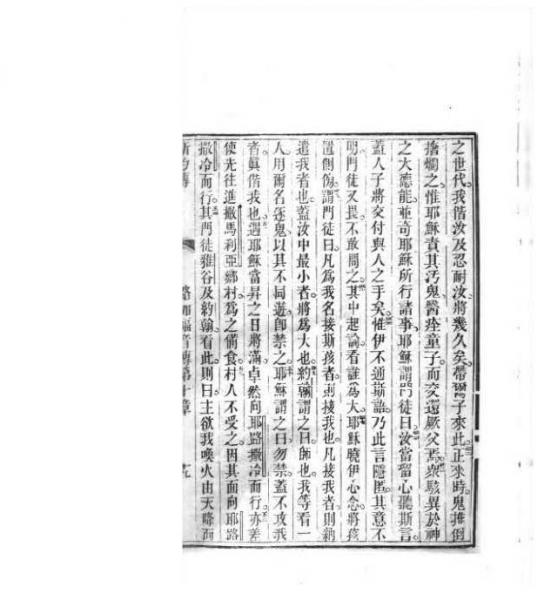 之世代我偕汝及忍耐汝將幾久矣帶爾子來此正來時鬼推倒
搶爛之惟耶穌責其汚鬼醫痊童子而交還厥父焉衆駭異於神
之大德能並奇耶穌所行諸事耶穌謂門徒曰汝當留心聽斯言
蓋人子將交付與人之手矣惟伊不通斯語乃此言隱匿其意不
明門徒又畏不敢問之其中起論看誰爲大耶穌曉伊心念將孩
置側傍謂門徒曰凡爲我名接斯孩者則接我也凡接我者則納
遣我者也蓋汝中最小者將爲大也約翰謂之曰師也我等看一
人用爾名逐鬼以其不同遊卽禁之耶穌謂之曰勿禁蓋不攻我
者眞偕我也遇耶穌當昇之日將滿卓然向耶路撒冷而行亦差
使先往進撒馬利亞鄉村爲之備食村人不受之因其面向耶路
撒冷而行其門徒雅各及約翰看此則曰主欲我喚火由天降而